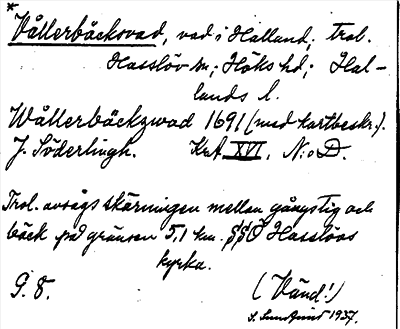 *
Vållerbäcksvad, vad i Halland; trol.
Hasslöv sn; Höks hd; Hal-
lands l.
Wållerbäckzwad 1691 (med kartbeskr.).
J. Söderlingh. KrA XVI, N:o D.
Trol. avsågs skärningen mellan gångstig och
bäck på gränsen 5,1 km. SSÖ Hasslövs
kyrka.
G. 8. (Vänd!)
S. Sundquist 1937.